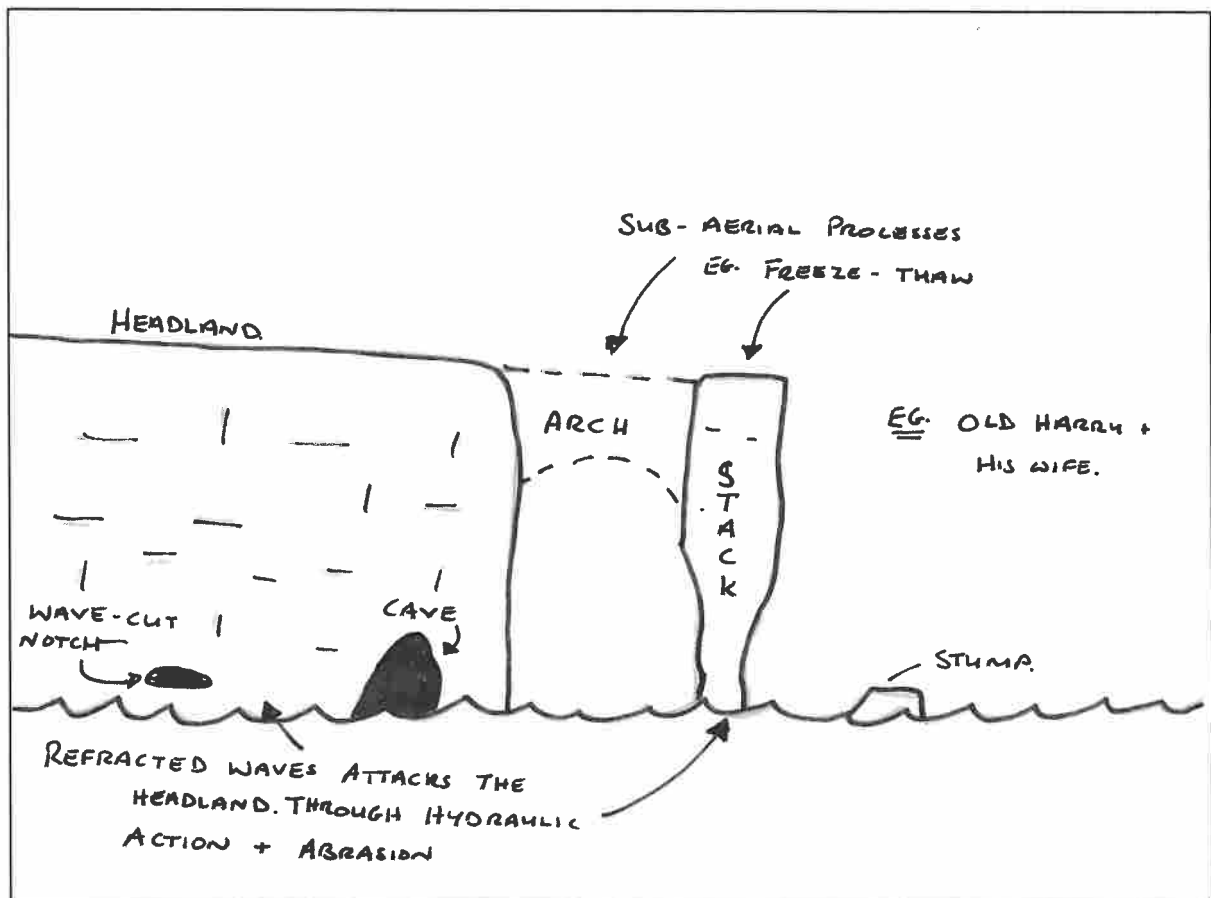 SUB-AERIAL PROCESSES
EG. FREEZE-THAW
HEADLAND.
ARCH
EG. OLD HARRY +
HIS WIFE.
STACK
WAVE-CUT
NOTCH
CAVE
STUMP.
REFRACTED WAVES ATTACKS THE
HEADLAND. THROUGH HYDRAULIC
ACTION + ABRASION